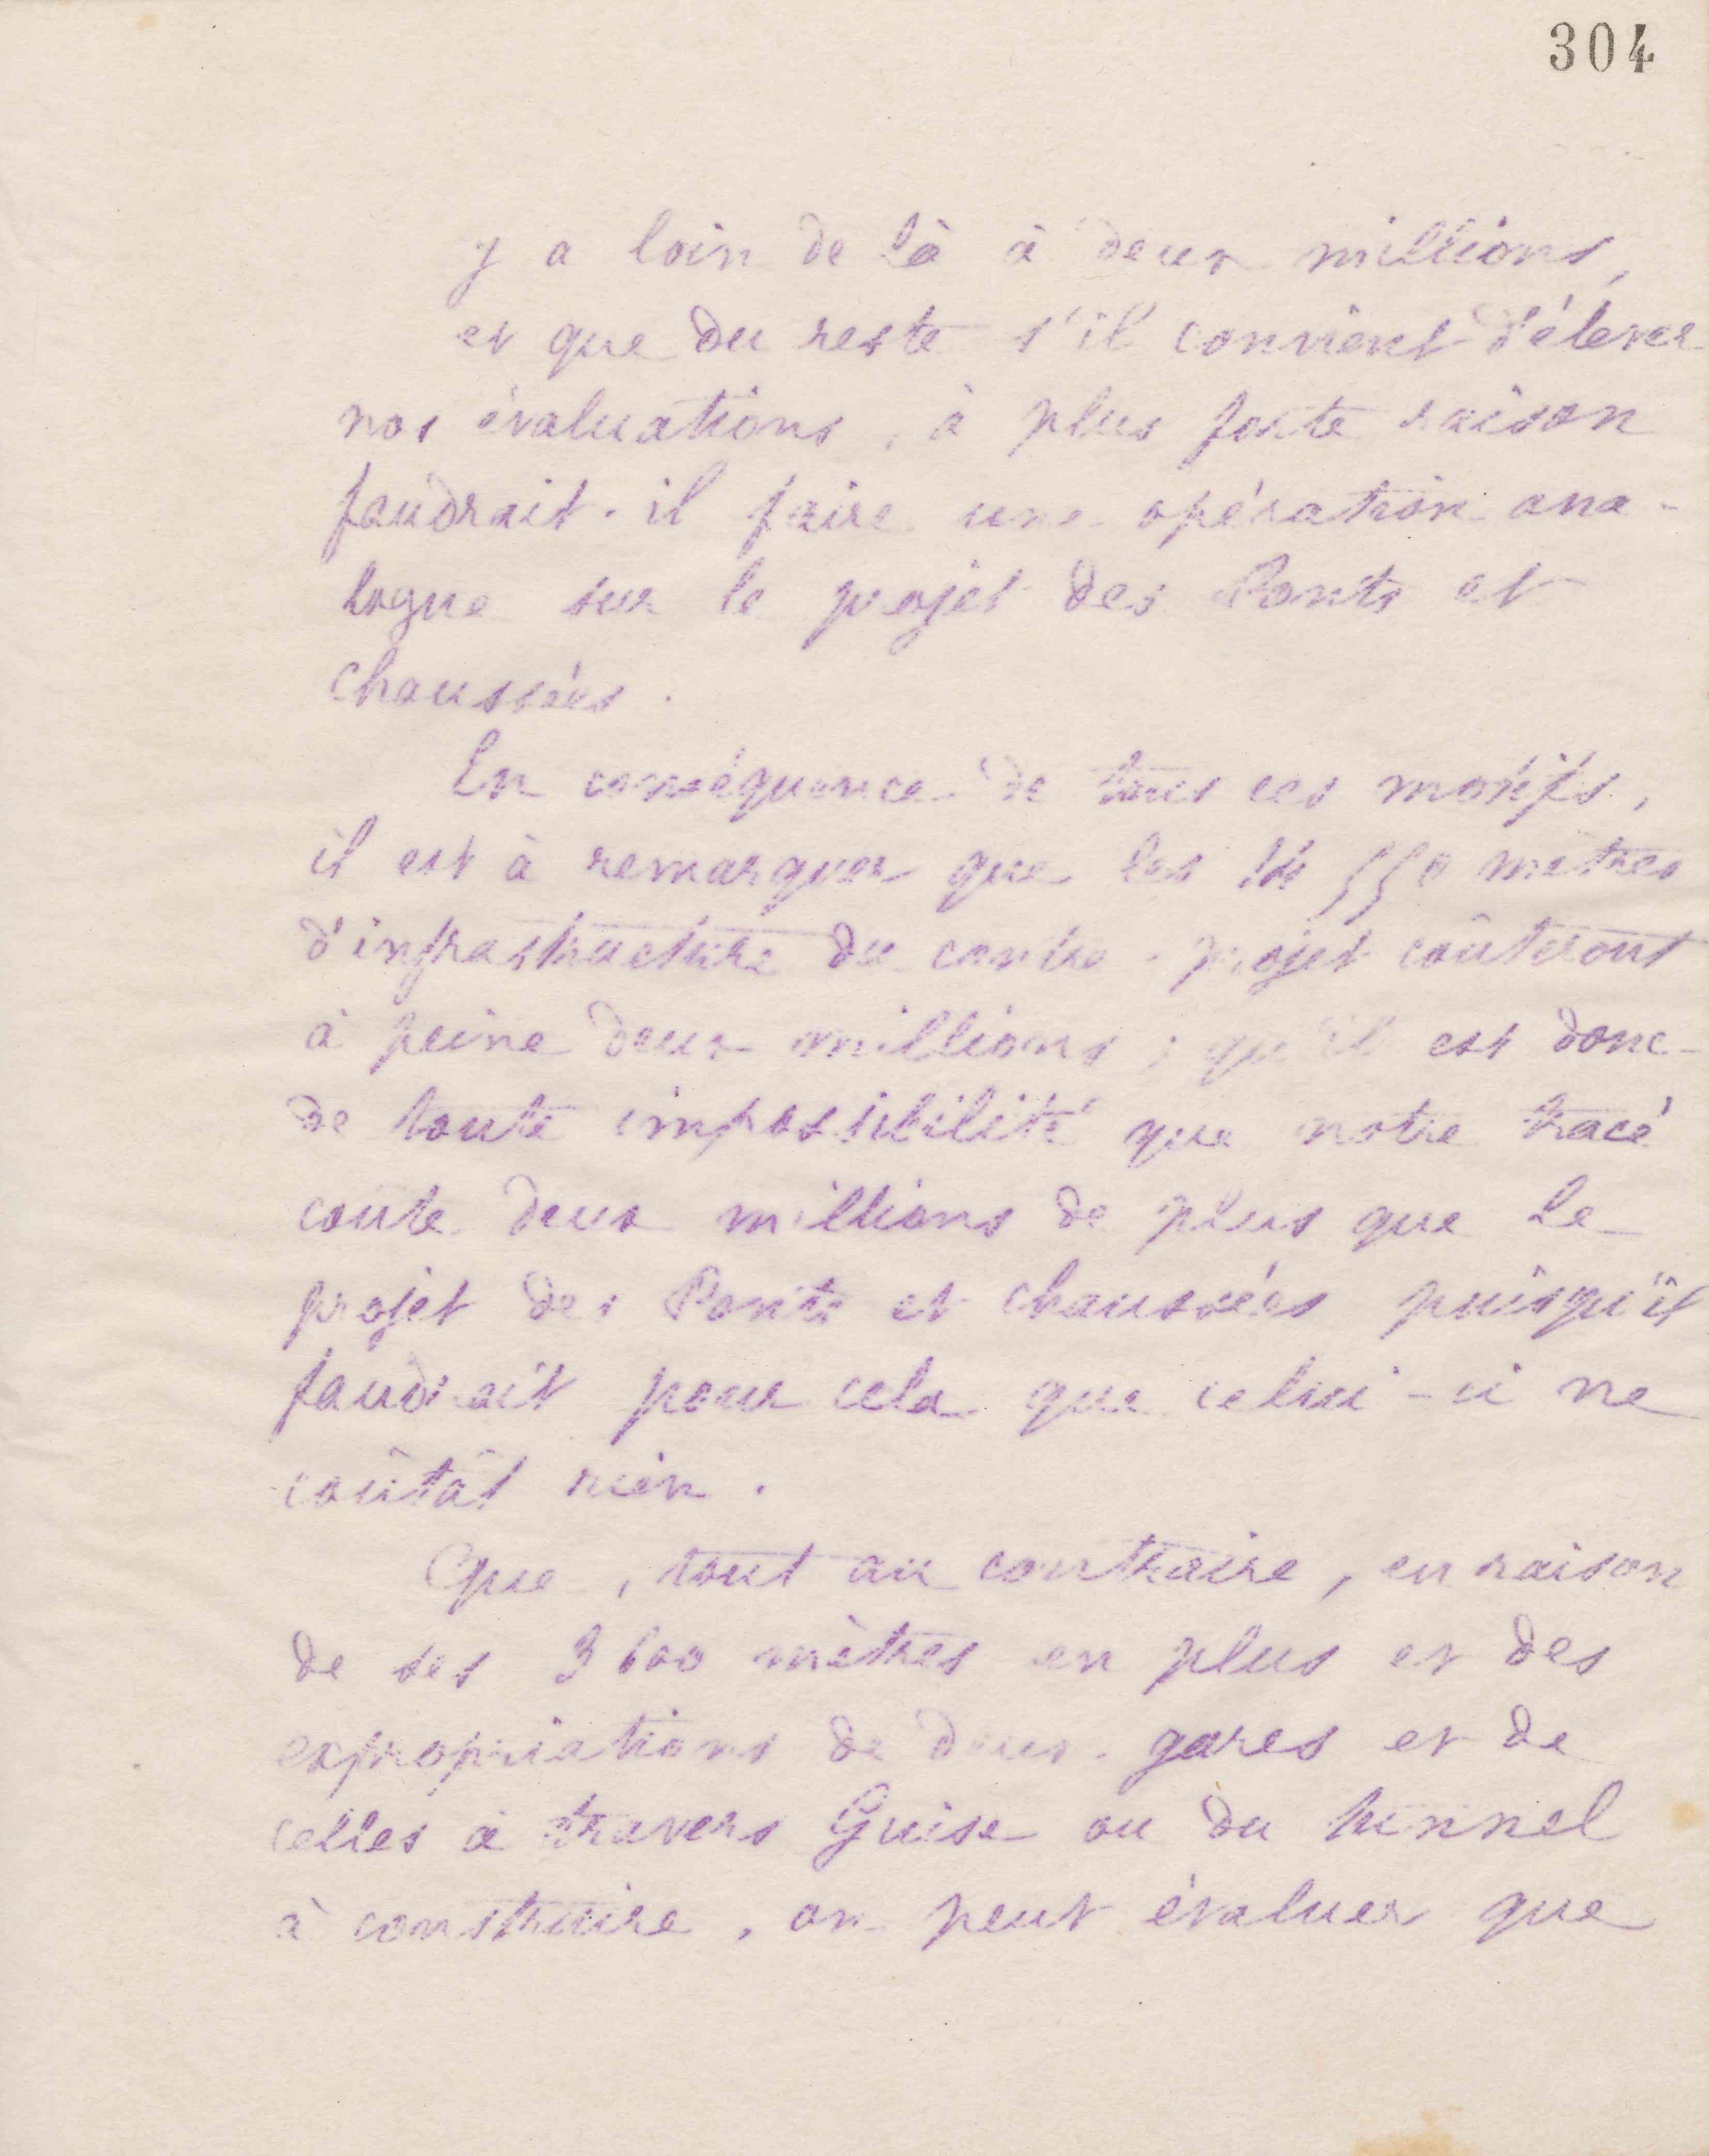 304
y a loin de là à deux millions,
et que du reste s'il convient d'élever
nos évaluations, à plus forte raison
faudrait-il faire une opération ana-
logue sur le projet des Ponts et
chaussées.
En conséquence de tous ces motifs,
il est à remarquer que les 14 550 mètres
d'infrastructure du contre-projet coûteront
à peine deux millions ; qu'il est donc
de toute impossibilité que notre tracé
coute deux millions de plus que le
projet des Ponts et chaussées puisqu'il
faudrait pour cela que celui-ci ne
coûtât rien.
Que, tout au contraire, en raison
de ses 3 600 mètres en plus et des
expropriations de deux gares et de
celles à travers Guise ou du tunnel
à construire, on peut évaluer que